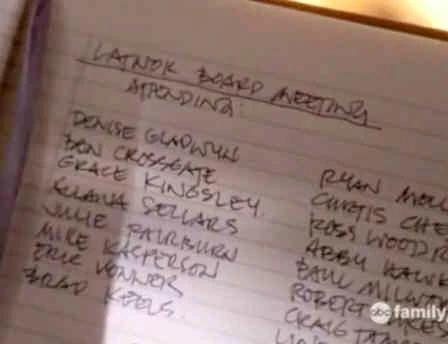 LATNOK BOARD MEETING
ATTENDING:
DENISE GLADWYN
BEN CROSSGATE
GRACE KINGSLEY
SELLARS
JULIE FAIRBURN
MIKE KASPERSON
ERIC VONNERS
BRAD KEELS.
RYAN MOLL
CURTIS CHE
ROSS WOOD
ABBY HAWK
PAUL
ROBERT
CRAIG
abc family